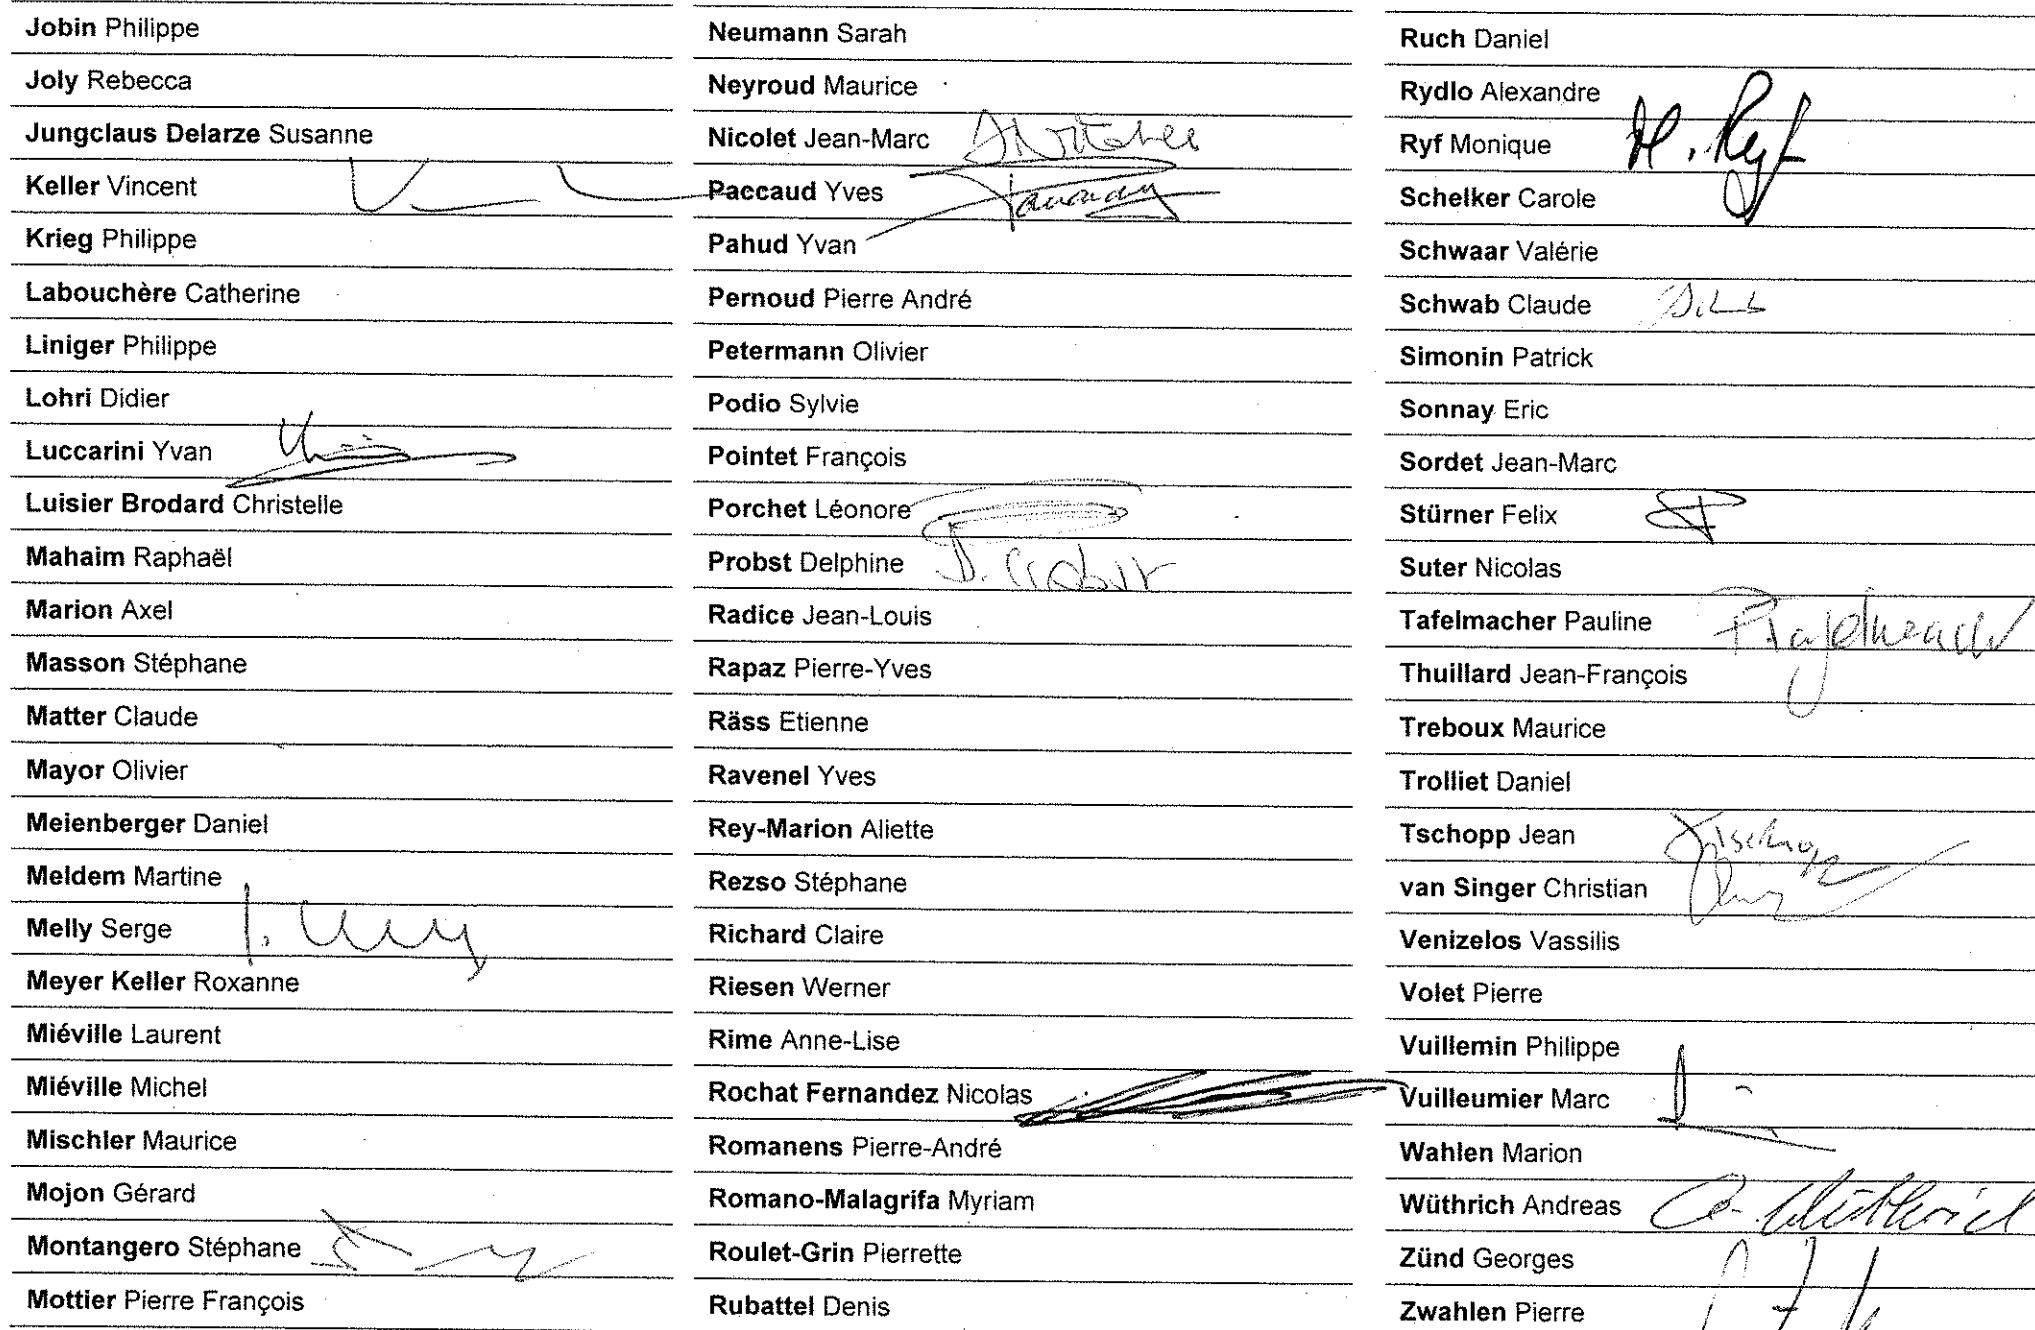 Jobin Philippe
Joly Rebecca
Jungclaus Delarze Susanne
Keller Vincent
Krieg Philippe
Labouchère Catherine
Liniger Philippe
Lohri Didier
Luccarini Yvan
Luisier Brodard Christelle
Mahaim Raphaël
Marion Axel
Masson Stéphane
Matter Claude
Mayor Olivier
Meienberger Daniel
Meldem Martine
Melly Serge
Meyer Keller Roxanne
Miéville Laurent
Miéville Michel
Mischler Maurice
Mojon Gérard
Montangero Stéphane
Mottier Pierre François
Neumann Sarah
Neyroud Maurice
Nicolet Jean-Marc
Paccaud Yves
Pahud Yvan
Pernoud Pierre André
Petermann Olivier
Podio Sylvie
Pointet François
Porchet Léonore
Probst Delphine D. Probst
Radice Jean-Louis
Rapaz Pierre-Yves
Räss Etienne
Ravenel Yves
Rey-Marion Aliette
Rezso Stéphane
Richard Claire
Riesen Werner
Rime Anne-Lise
Rochat Fernandez Nicolas
Romanens Pierre-André
Romano-Malagrifa Myriam
Roulet-Grin Pierrette
Rubattel Denis
Ruch Daniel
Rydlo Alexandre
Ryf Monique M. Ryf
Schelker Carole
Schwaar Valérie
Schwab Claude
Simonin Patrick
Sonnay Eric
Sordet Jean-Marc
Stürner Felix
Suter Nicolas
Tafelmacher Pauline PTafelmacher
Thuillard Jean-François
Treboux Maurice
Trolliet Daniel
Tschopp Jean JTschopp
van Singer Christian
Venizelos Vassilis
Volet Pierre
Vuillemin Philippe
Vuilleumier Marc
Wahlen Marion
Wüthrich Andreas A. Wüthrich
Zünd Georges
Zwahlen Pierre